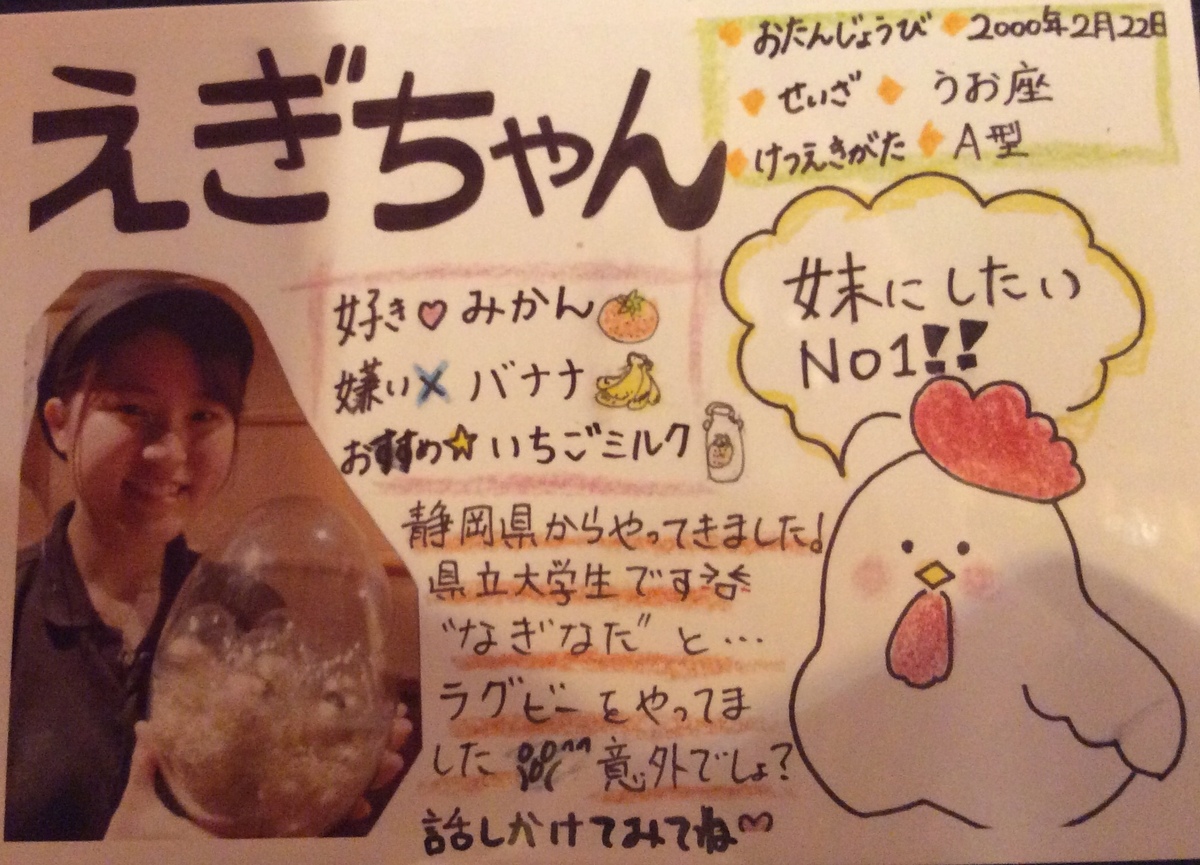 えぎちゃん
おたんじょうび 2000年2月22日
せいざ うお座
けつえきがた A型
妹にしたい
NO1!!
好き♡みかん
嫌い×バナナ
おすすめ☆いちごミルク
静岡県からやってきました!
県立大学生です
"なぎなた"と…
ラグビーをやってま
した 意外でしょ?
話しかけてみてね♡